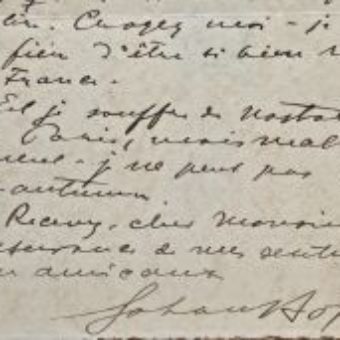 Croyez moi - je
fier d'être si bien
France.
Et je souffre de nosta
Paris, mais mal
ment - je ne peux pas
autumn
Recevez, cher Monsie
ssurance de mes senti
amicaux
Johan Ho